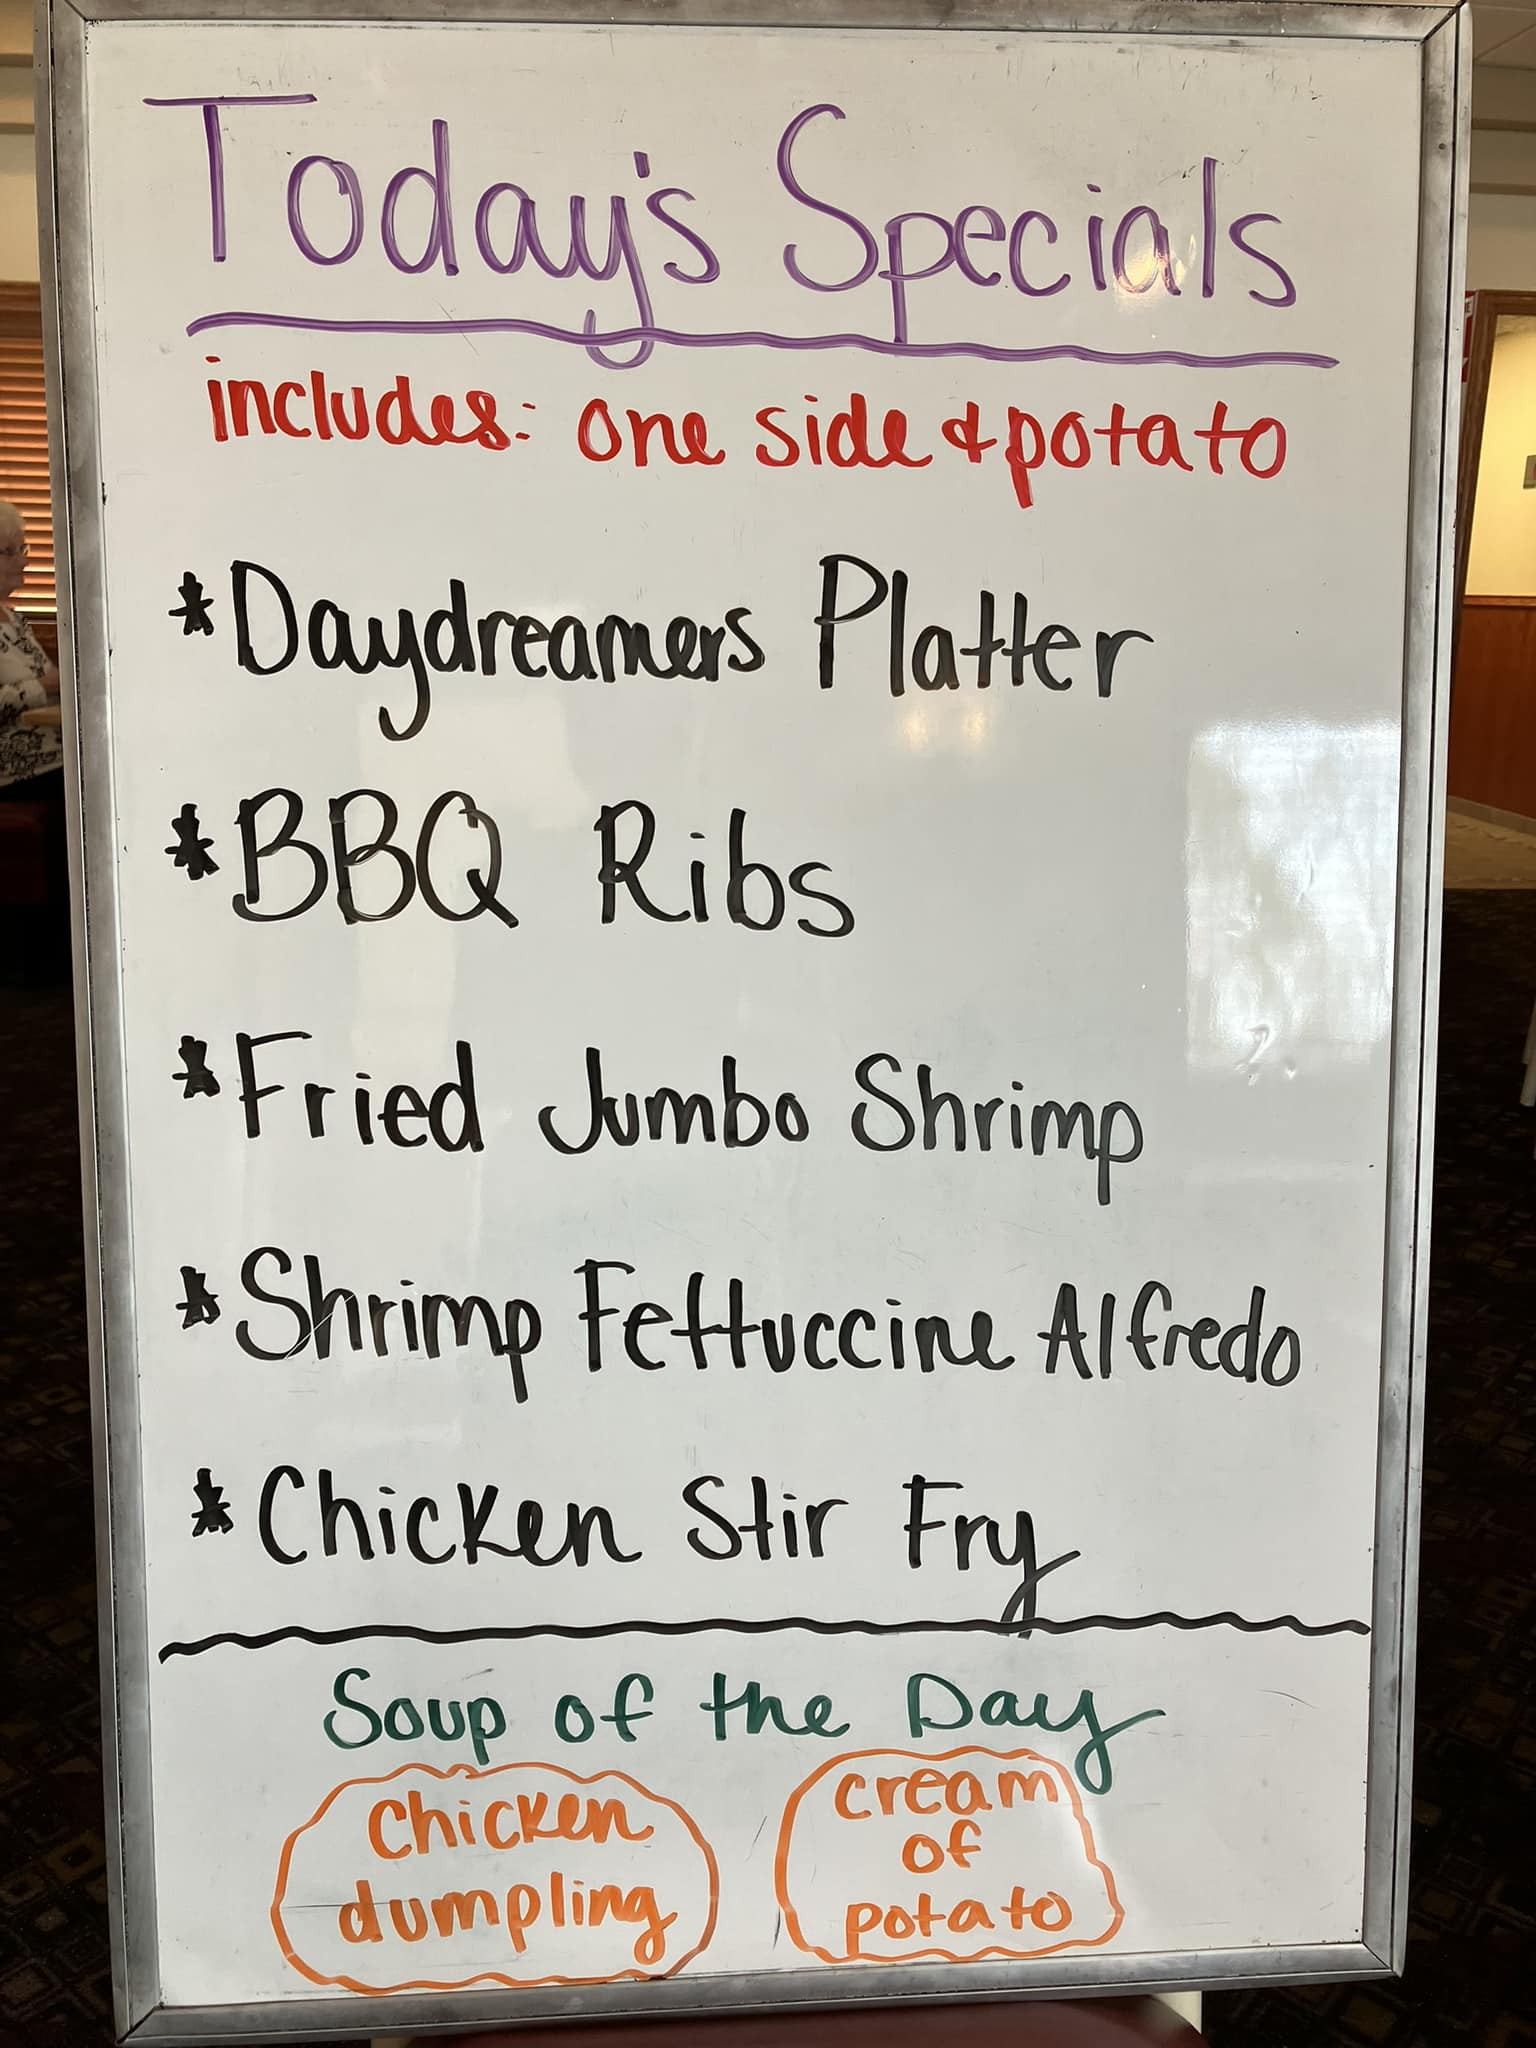 Today's Specials
includes: one side & potato
*Daydreamers Platter
*BBQ Ribs
*Fried Jumbo Shrimp
*Shrimp Fettuccine Alfredo
*Chicken Stir Fry
Soup of the Day
Chicken
dumpling
cream
of
potato